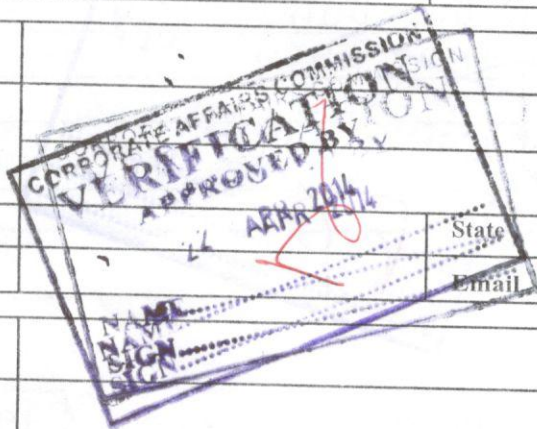 CORPORATE AFFAIRS COMMISSION
VERIFICATION
APPROVED BY
APR 2014
NAME
SIGN
State
Email